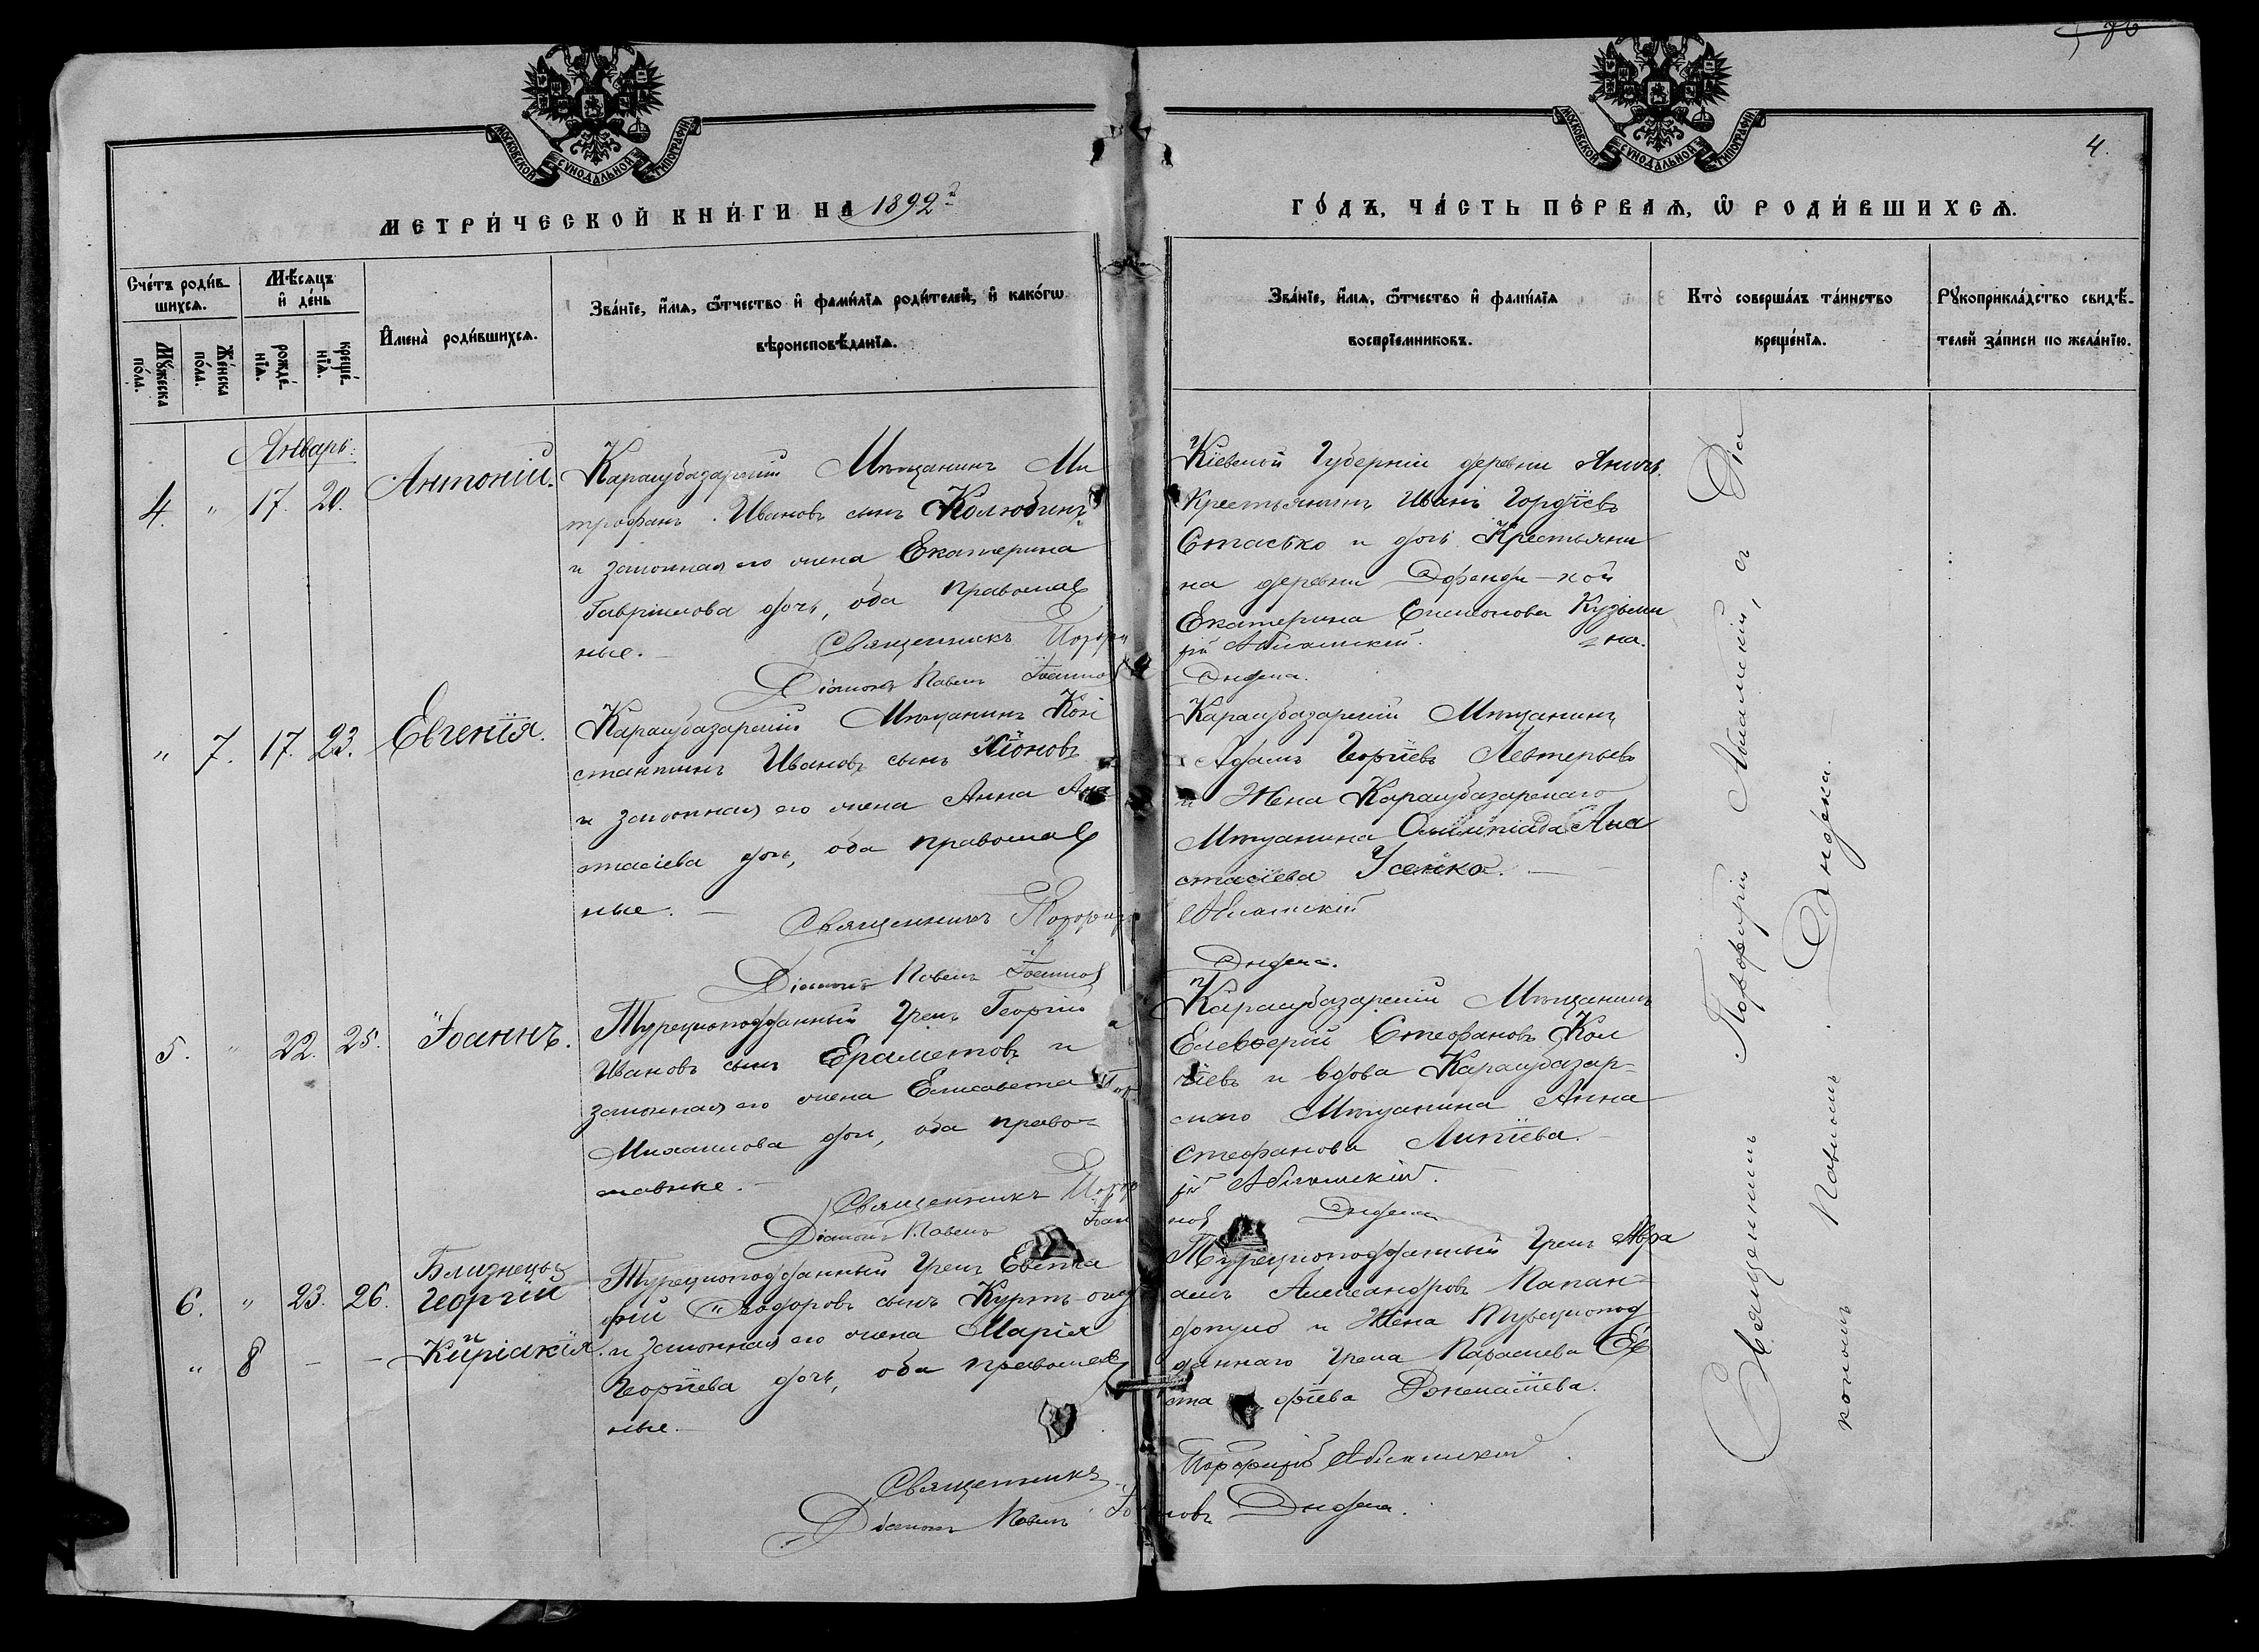 4.
МОСКОВСКОЙ СѴНОДАЛЬНОЙ ТИПОГРАФІИ
МОСКОВСКОЙ СѴНОДАЛЬНОЙ ТИПОГРАФІИ
МЕТРИ́ЧЕСКОЙ КНИ́ГИ НА 1892й
ГО́ДЪ, ЧА́СТЬ ПЕ́РВАѦ, Ѽ РОДИ́ВШИХСѦ.
Сче́тъ роди́в-
шихсѧ.
Мꙋ́жеска
по́ла.
Же́нска
по́ла.
Мѣ́сѧцъ
и҆ де́нь
рожде́-
нїѧ.
креще́-
нїѧ.
И҆мена̀ роди́вшихсѧ.
Зва́нїе, и҆́мѧ, ѻ҆́тчество и҆ фами́лїѧ роди́телей, и҆ како́гѡ
вѣроисповѣ́данїѧ.
Зва́нїе, и҆́мѧ, ѻ҆́тчество и҆ фами́лїѧ
воспрїемниковъ.
Кто̀ соверша́лъ та́инство
креще́нїѧ.
Рꙋкоприкла́дство свидѣ́-
телей за́писи по жела́нїю.
Январь.
4. " 17. 20. Антоній.
Карасубазарскій Мѣщанинъ Ми
трофанъ Ивановъ сынъ Колюбинъ
и законная его жена Екатерина
Гавріилова дочь, оба православ
ные. —
Священникъ Порфи
Діаконъ Павелъ Іоаннов
Кіевской Губерніи деревни
Крестьянинъ Иванъ Гордіевъ
Стасько и дочь Крестьяни
на деревни
Екатерина Симонова Кузьми
на.
рій Абламскій.
Дидега.
" 7. 17. 23. Евгенія.
Карасубазарскій Мѣщанинъ Кон
стантинъ Ивановъ сынъ Хіоновъ
и законная его жена Анна Ана
стасіева дочь, оба православ
ные. —
Священникъ Порфирій
Діаконъ Павелъ Іоаннов
Карасубазарскій Мѣщанинъ
Адамъ Георгіевъ Левтерьевъ
и Жена Карасубазарскаго
Мѣщанина Олимпіада Ана
стасіева Усенко. —
Абламскій
5. " 22. 25. Іоаннъ.
Турецкоподданный Грекъ Георгій
Ивановъ сынъ Ераметовъ и
законная его жена Елисавета
Михаилова дочь, оба право-
славные. —
Священникъ Порфи
Діаконъ Павелъ Іоан
Карасубазарскій Мѣщанинъ
Елевферій Стефановъ Кол
чіевъ и вдова Карасубазар-
скаго Мѣщанина Анна
Стефанова Липіева. —
рій Абламскій.
нов
6. " 23. 26. Близнецы
Георгій
и
" 8 — — Киріакія.
Турецкоподданный Грекъ Евста
фій Ѳеодоровъ сынъ Куртъ-оглу
и законная его жена Марія
Георгіева дочь, оба православ
ные. —
Священникъ
Діаконъ Павелъ Іоан
Турецкоподданный Грекъ Авра
амъ Александровъ Папан-
допуло и Жена Турецкопод
даннаго Грека Парасцева Ев
ста фіева
Порфирій Абламскій
новъ
Священникъ Порфирій Абламскій, съ Діа
кономъ Павломъ